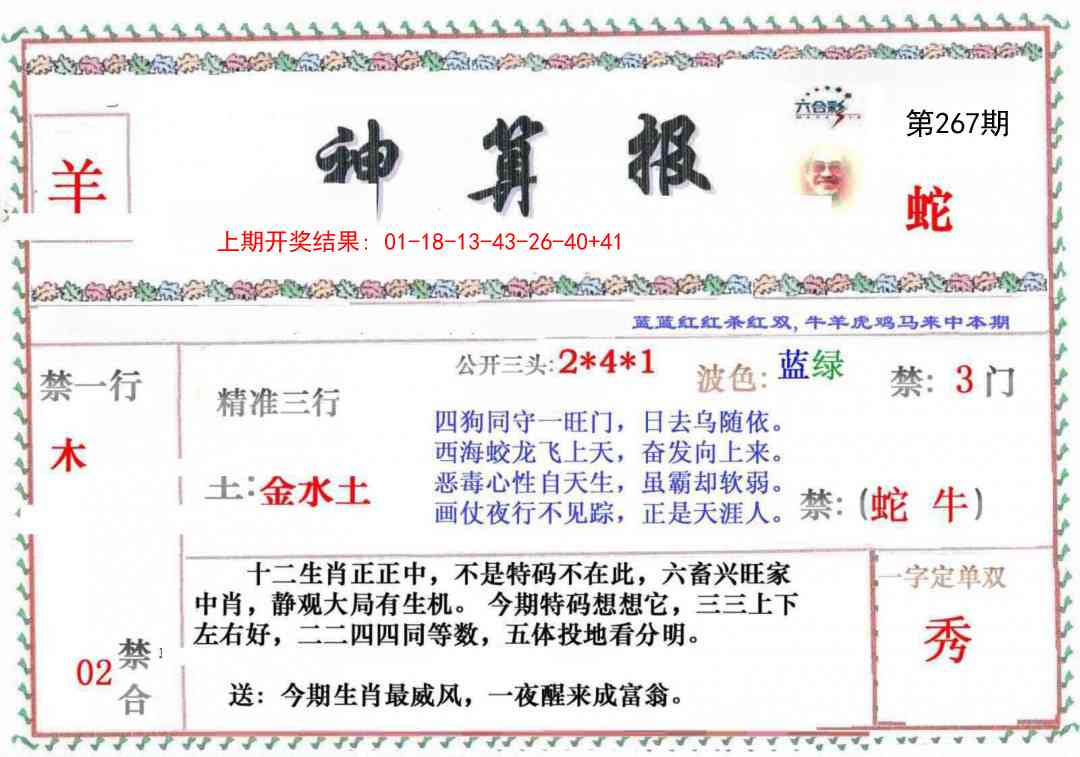 六合彩
第267期
神算报
羊
蛇
上期开奖结果: 01-18-13-43-26-40+41
蓝蓝红红杀红双,牛羊虎鸡马来中本期
禁一行
木
精准三行
土:金水土
公开三头:2*4*1
波色:蓝绿
禁:3门
四狗同守一旺门，日去乌随依。
西海蛟龙飞上天，奋发向上来。
恶毒心性自天生，虽霸却软弱。
画仗夜行不见踪，正是天涯人。
禁:(蛇 牛)
十二生肖正正中，不是特码不在此，六畜兴旺家
中肖，静观大局有生机。今期特码想想它，三三上下
左右好，二二四四同等数，五体投地看分明。
送：今期生肖最威风，一夜醒来成富翁。
一字定单双
秀
02
禁
合